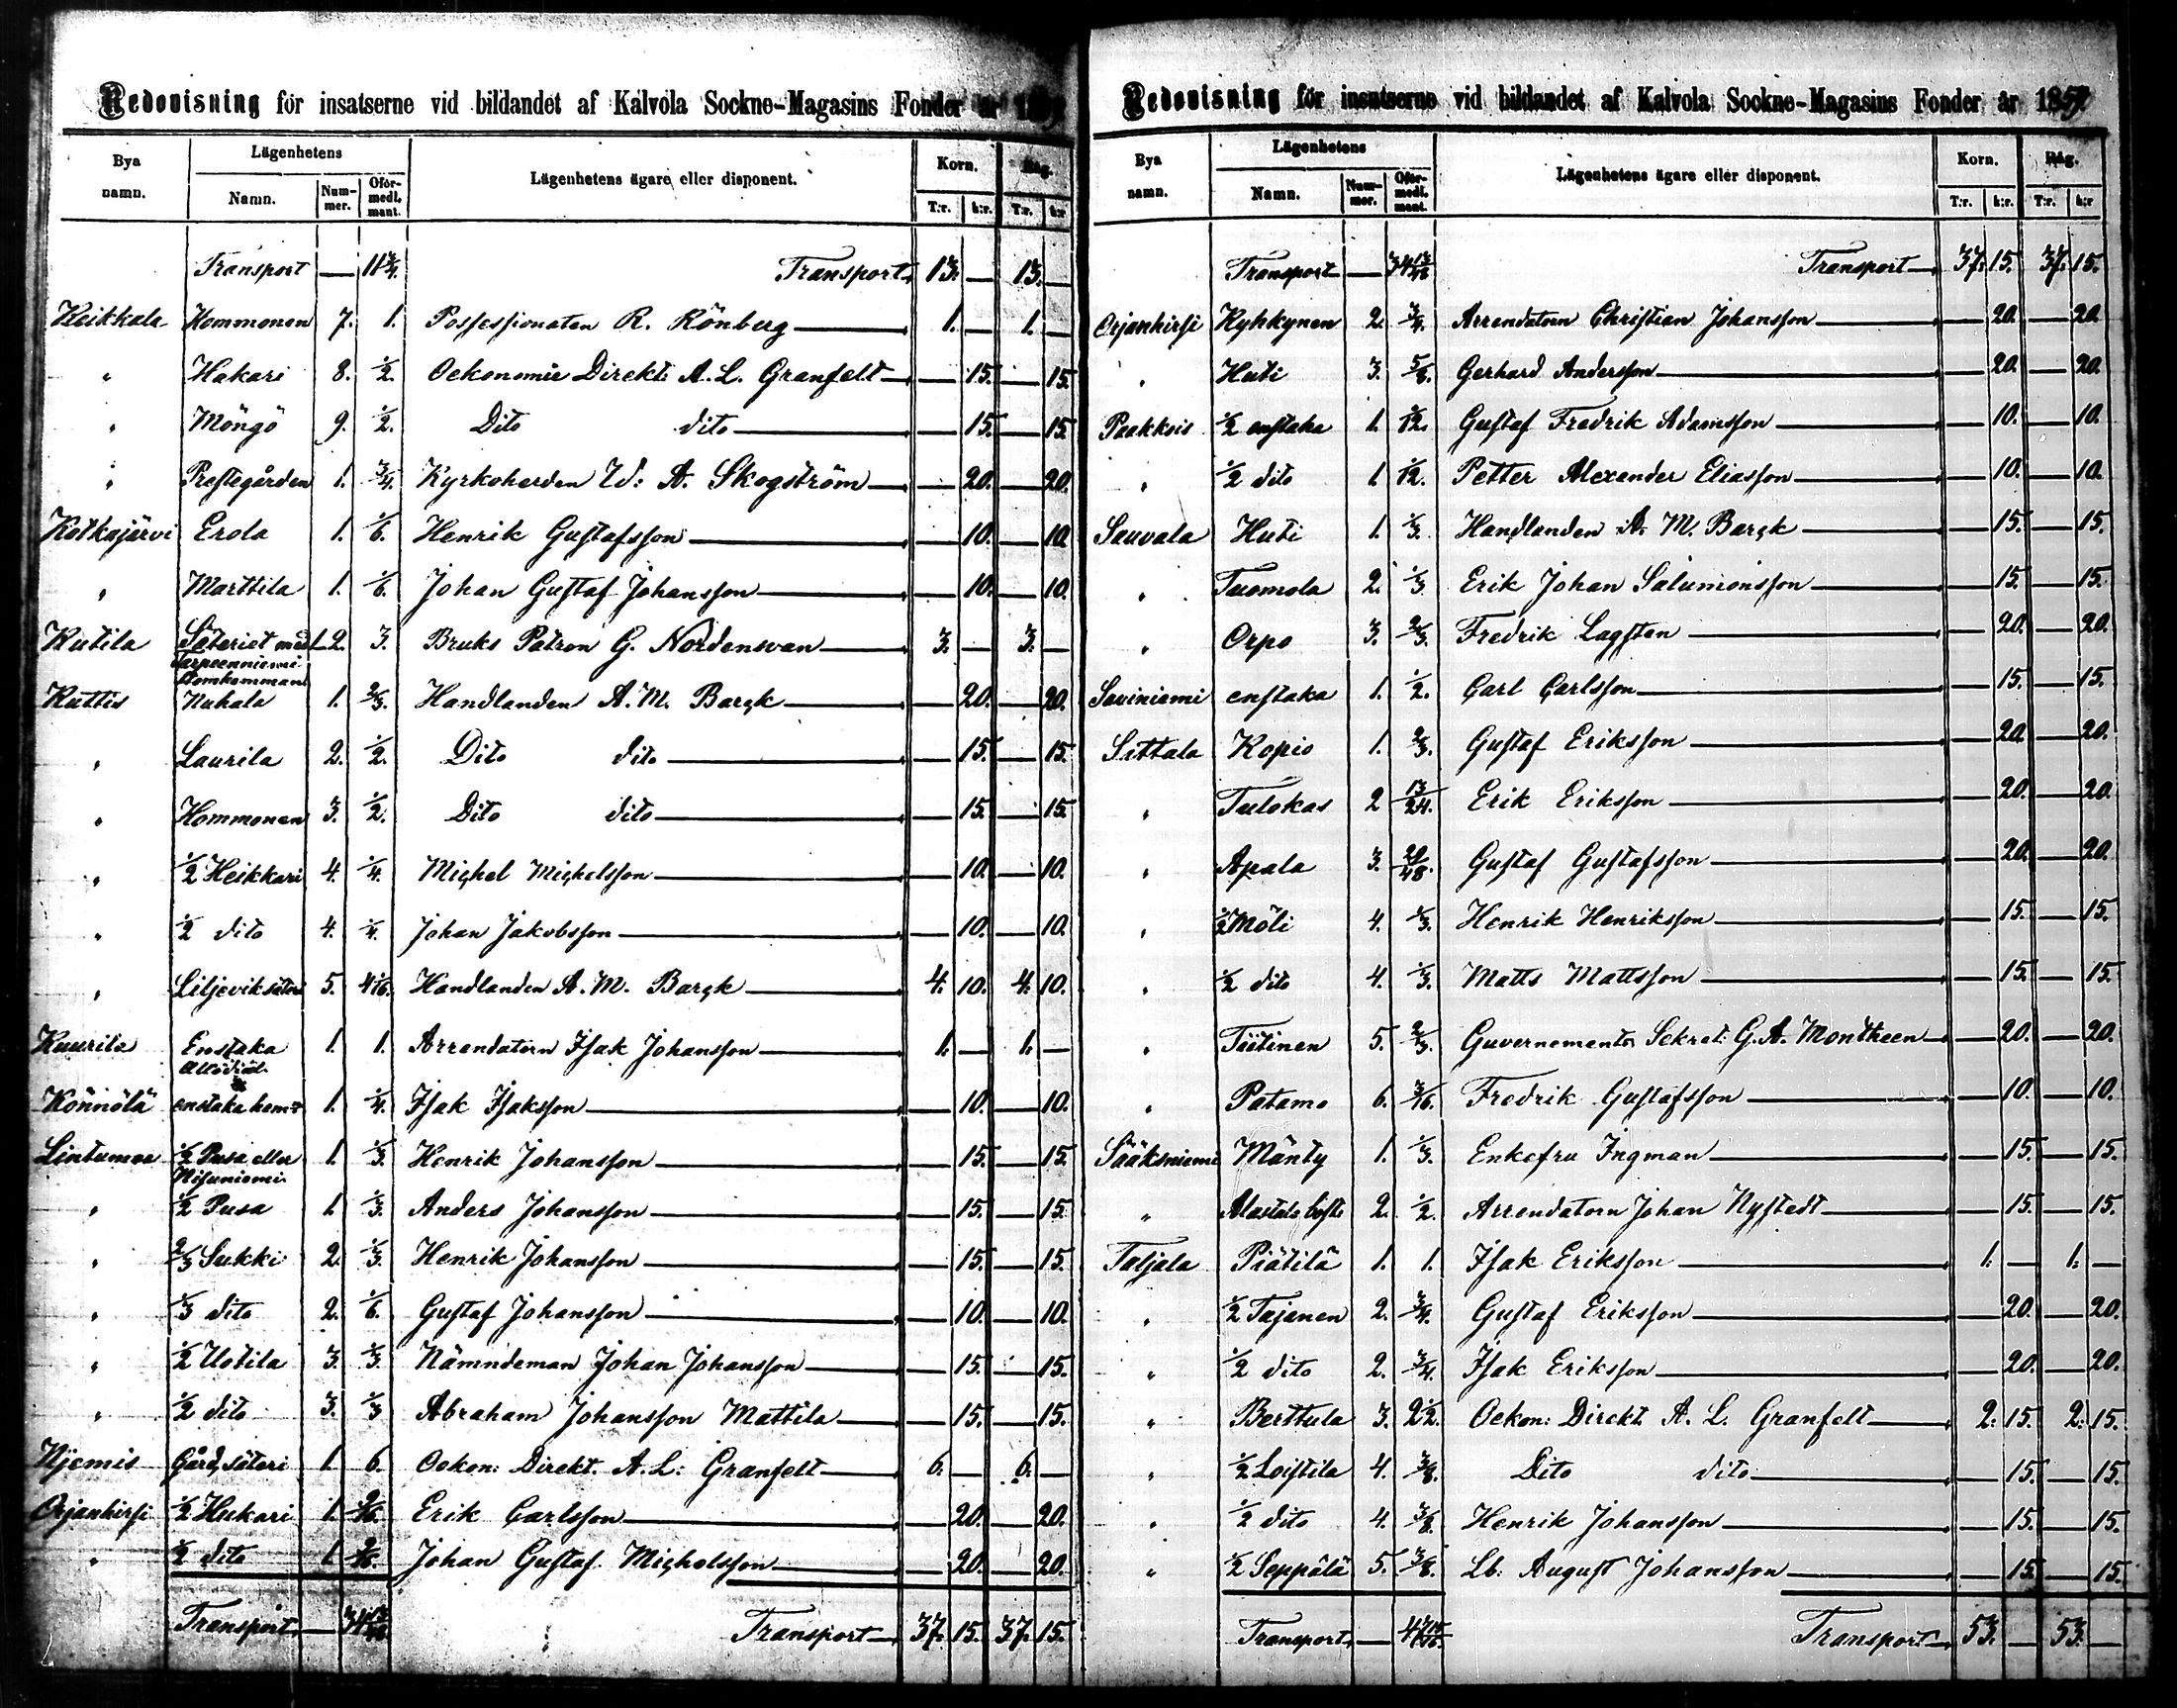 Redovisning för insatserne vid bildandet af Kalvola Sockne-Magasins Fonder år 1859
Bya namn. Lägenhetens Namn. Nummer. Oförmedl. mant. Lägenhetens ägare eller disponent. Korn. T:r. k:r. Råg. T:r. k:r
Transport — 11 3/4. Transport 13. — 13. —
Keikkala Hommonen 7. 1. Possessionaten R. Rönberg 1. — 1. —
" Hakari 8. 1/2. Oekonomie Direkt: A. L. Granfelt — 15. — 15.
" Möngö 9. 1/2. Dito dito — 15. — 15.
" Prestegården 1. 3/4. Kyrkoherden W: A. Skogström — 20. — 20.
Kotkajärvi Erola 1. 1/6. Henrik Gustafsson — 10. — 10.
" Marttila 1. 1/6. Johan Gustaf Johansson — 10. — 10.
Kutila Säteriet med 2. 3. Bruks Patron G. Nordensvan 3. — 3. —
Kuttis Nuhala 1. 2/3. Handlanden A. M. Bargk — 20. — 20.
" Laurila 2. 1/2. Dito dito — 15. — 15.
" Hommonen 3. 1/2. Dito dito — 15. — 15.
" 1/2 Heikkari 4. 1/4. Michel Michelsson — 10. — 10.
" 1/2 dito 4. 1/4. Johan Jakobsson — 10. — 10.
" Liljevik säteri 5. 4 1/16. Handlanden A. M. Bargk 4. 10. 4. 10.
Kuurila Enstaka 1. 1. Arrendatorn Isak Johansson 1. — 1. —
Allodial
Könnölä enstaka hem: 1. 1/4. Isak Isaksson — 10. — 10.
Lintumaa 1/2 Pusa eller 1. 1/3. Henrik Johansson — 15. — 15.
Nisuniemi
" 1/2 Pusa 1. 1/3. Anders Johansson — 15. — 15.
" 2/3 Sukki 2. 1/3. Henrik Johansson — 15. — 15.
" 1/3 dito 2. 1/6. Gustaf Johansson — 10. — 10.
" 1/2 Uotila 3. 1/3. Nämndeman Johan Johansson — 15. — 15.
" 1/2 dito 3. 1/3 Abraham Johansson Mattila — 15. — 15.
Njemis Gård, säteri 1. 6. Oekon: Direkt. A. L: Granfelt 6. — 6. —
Orjanhirsi 1/2 Hukari 1. 9/16. Erik Carlsson — 20. — 20.
" 1/2 dito 1. 9/16. Johan Gustaf Michelsson — 20. — 20.
Transport — 34 13/48 Transport 37. 15. 37. 15.
Redovisning för insatserne vid bildandet af Kalvola Sockne-Magasins Fonder år 1859
Bya namn. Lägenhetens Namn. Nummer. Oförmedl. mant. Lägenhetens ägare eller disponent. Korn. T:r. k:r. Råg. T:r. k:r
Transport — 34 13/48 Transport 37. 15. 37. 15.
Orjanhirsi Kyhkynen 2. 3/4. Arrendatorn Christian Johansson — 20. — 20.
" Huti 3. 5/8. Gerhard Andersson — 20. — 20.
Paakkois 1/2 enstaka 1. 1/12. Gustaf Fredrik Adamsson — 10. — 10.
" 1/2 dito 1. 1/12. Petter Alexander Eliasson — 10. — 10.
Sauvala Huti 1. 1/3. Handlanden A. M. Bargk — 15. — 15.
" Tuomola 2. 1/3 Erik Johan Salumonsson — 15. — 15.
" Orpo 3. 2/3. Fredrik Lagsten — 20. — 20.
Saviniemi enstaka 1. 1/2. Carl Carlsson — 15. — 15.
Sittala Kopio 1. 2/3. Gustaf Eriksson — 20. — 20.
" Tulokas 2 13/24. Erik Eriksson — 20. — 20.
" Apala 3. 29/48. Gustaf Gustafsson — 20. — 20.
" 1/2 Möli 4. 1/3. Henrik Henriksson — 15. — 15.
" 1/2 dito 4. 1/3. Matts Mattsson — 15. — 15.
" Tiitinen 5. 2/3. Guvernements Sekret: G. A. Montheen — 20. — 20.
" Patamo 6. 3/16. Fredrik Gustafsson — 10. — 10.
Sääksniemi Mänty 1. 1/3. Enkefru Ingman — 15. — 15.
" Alastalo 2. 1/2. Arrendatorn Johan Nystedt — 15. — 15.
Taljala Päätilä 1. 1. Isak Eriksson 1. — 1. —
" 1/2 Tajanen 2. 3/4. Gustaf Eriksson — 20. — 20.
" 1/2 dito 2. 3/4. Isak Eriksson — 20. — 20.
" Berttula 3. 2 1/2. Oekon: Direkt A. L. Granfelt 2. 15. 2. 15.
" 1/2 Loistila 4. 3/8. Dito dito — 15. — 15.
" 1/2 dito 4. 3/8. Henrik Johansson — 15. — 15.
" 1/2 Seppälä 5. 3/8. Lb: August Johansson — 15. — 15.
Transport — Transport 53. — 53. —